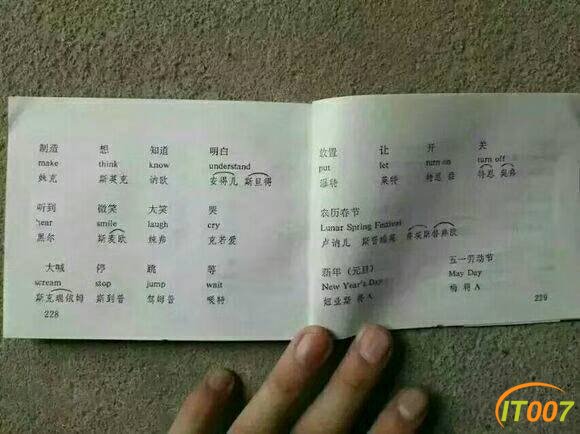 制造 想 知道 明白
make think know understand
妹克 斯英克 讷欧 安得儿 斯旦得
听到 微笑 大笑 哭
hear smile laugh cry
黑尔 斯麦欧 克若爱
大喊 停 跳 等
scream stop jump wait
斯克瑞依姆 斯到普 驾姆普 喂特
228
放置 让 开 关
put let turn on turn off
莱特 特恩 特恩 奥弗
农历春节
Lunar Spring Festival
卢讷儿
新年（元旦） 五一劳动节
New Year's Day May Day
纽业斯 得A 梅 得A
229
IT007